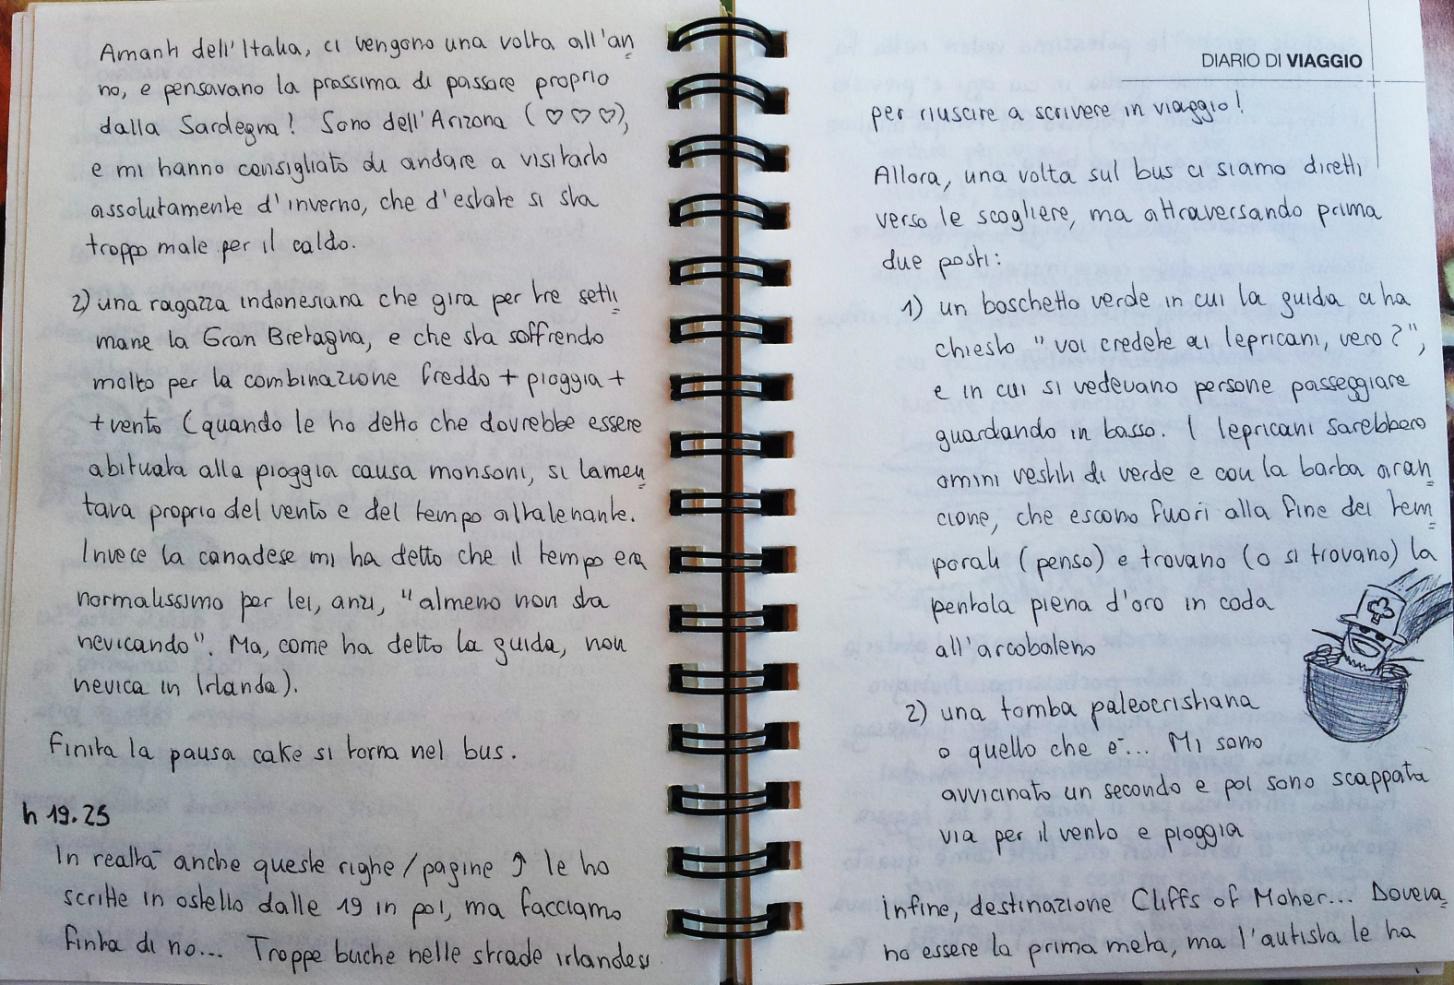 Amanti dell'Italia, ci vengono una volta all'an
no, e pensavano la prossima di passare proprio
dalla Sardegna! Sono dell'Arizona (♡♡♡),
e mi hanno consigliato di andare a visitarlo
assolutamente d'inverno, che d'estate si sta
troppo male per il caldo.
2) una ragazza indonesiana che gira per tre setti
mane la Gran Bretagna, e che sta soffrendo
molto per la combinazione freddo + pioggia +
+ vento (quando le ho detto che dovrebbe essere
abituata alla pioggia causa monsoni, si lamen
tava proprio del vento e del tempo altalenante.
Invece la canadese mi ha detto che il tempo era
normalissimo per lei, anzi, "almeno non sta
nevicando". Ma, come ha detto la guida, non
nevica in Irlanda).
Finita la pausa cake si torna nel bus.
h 19.25
In realtà anche queste righe/pagine ↑ le ho
scritte in ostello dalle 19 in poi, ma facciamo
finta di no... Troppe buche nelle strade irlandesi
DIARIO DI VIAGGIO
per riuscire a scrivere in viaggio!
Allora, una volta sul bus ci siamo diretti
verso le scogliere, ma attraversando prima
due posti:
1) un boschetto verde in cui la guida ci ha
chiesto "voi credete ai lepricani, vero?",
e in cui si vedevano persone passeggiare
guardando in basso. I lepricani sarebbero
omini vestiti di verde e con la barba aran
cione, che escono fuori alla fine dei tem
porali (penso) e trovano (o si trovano) la
pentola piena d'oro in coda
all'arcobaleno
2) una tomba paleocristiana
o quello che e'... Mi sono
avvicinato un secondo e poi sono scappata
via per il vento e pioggia
Infine, destinazione Cliffs of Moher... Doveva
no essere la prima meta, ma l'autista le ha